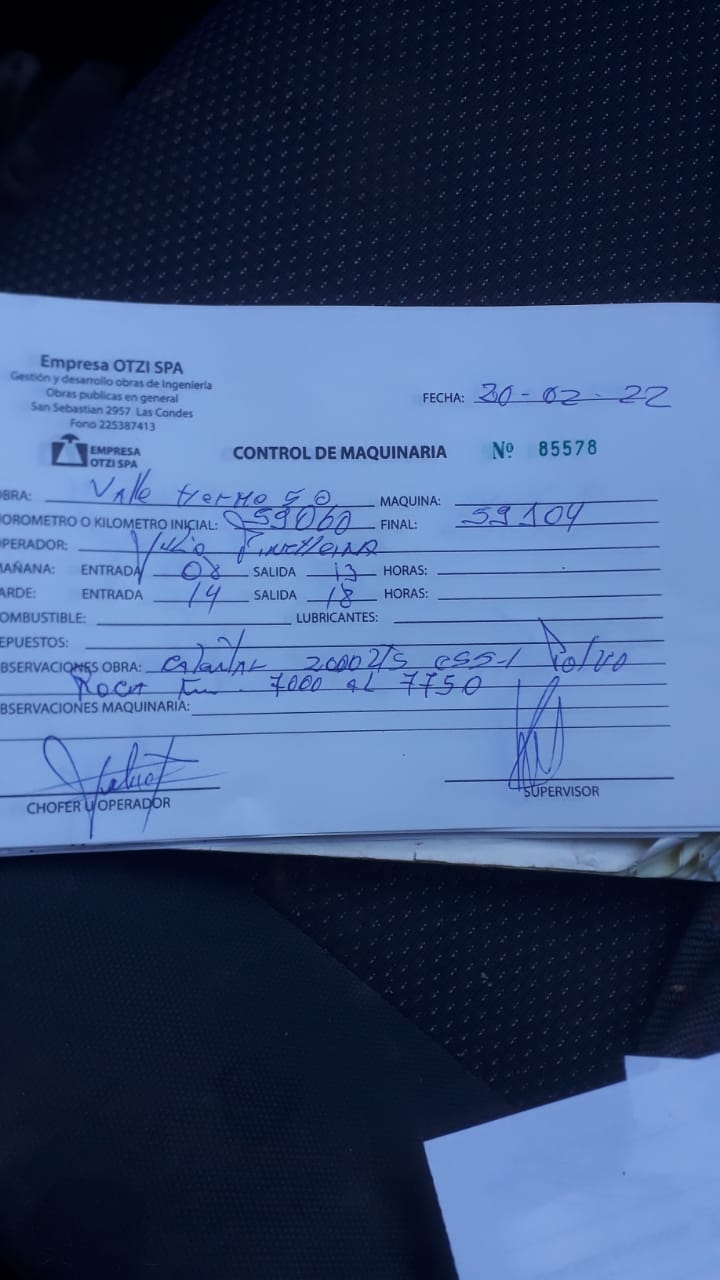 Empresa OTZI SPA
Gestión y desarrollo obras de Ingeniería
Obras publicas en general
San Sebastian 2957 Las Condes
Fono 225387413
FECHA: 20-02-22
EMPRESA
OTZI SPA
CONTROL DE MAQUINARIA Nº 85578
OBRA: Valle Hermoso MAQUINA:
HOROMETRO O KILOMETRO INICIAL: 59060 FINAL: 59104
OPERADOR: Julio
MAÑANA: ENTRADA 08 SALIDA 13 HORAS:
TARDE: ENTRADA 14 SALIDA 18 HORAS:
COMBUSTIBLE: LUBRICANTES:
REPUESTOS:
OBSERVACIONES OBRA: 20000 Polvo
Roca 7000 al 7750
OBSERVACIONES MAQUINARIA:
CHOFER U OPERADOR SUPERVISOR